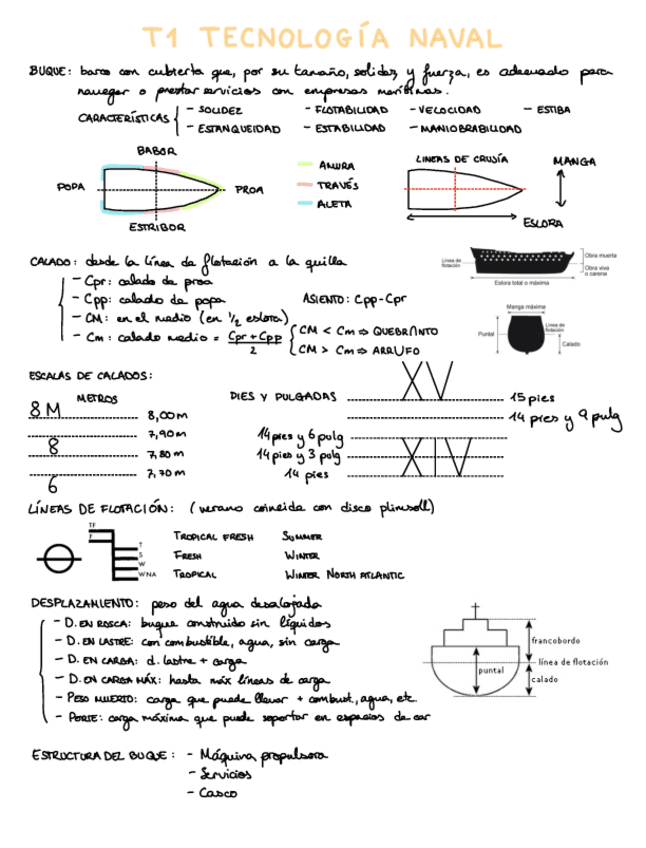 T1 TECNOLOGÍA NAVAL
BUQUE: barco con cubierta que, por su tamaño, solidez y fuerza, es adecuado para
navegar o prestar servicios con empresas marítimas.
CARACTERÍSTICAS
- SOLIDEZ - FLOTABILIDAD - VELOCIDAD - ESTIBA
- ESTANQUEIDAD - ESTABILIDAD - MANIOBRABILIDAD
BABOR
POPA PROA
ESTRIBOR
AMURA
TRAVÉS
ALETA
LINEAS DE CRUSÍA
MANGA
ESLORA
CALADO: desde la línea de flotación a la quilla
- Cpr: calado de proa
- Cpp: calado de popa
- CM: en el medio (en 1/2 eslora)
- Cm: calado medio = Cpr + Cpp / 2
ASIENTO: Cpp - Cpr
CM < Cm ⇒ QUEBRANTO
CM > Cm ⇒ ARRUFO
Línea de flotación
Obra muerta
Obra viva o carena
Eslora total o máxima
Manga máxima
Puntal
Línea de flotación
Calado
ESCALAS DE CALADOS:
METROS
8M 8,00 m
7,90 m
8 7,80 m
7,70 m
6
PIES Y PULGADAS
XV 15 pies
14 pies y 9 pulg
14 pies y 6 pulg
14 pies y 3 pulg XIV
14 pies
LÍNEAS DE FLOTACIÓN: (verano coincida con disco plimsoll)
TF
F
T
S
W
WNA
TROPICAL FRESH SUMMER
FRESH WINTER
TROPICAL WINTER NORTH ATLANTIC
DESPLAZAMIENTO: peso del agua desalojada
- D. EN ROSCA: buque construido sin líquidos
- D. EN LASTRE: con combustible, agua, sin carga
- D. EN CARGA: d. lastre + carga
- D. EN CARGA MÁX: hasta máx líneas de carga
- PESO MUERTO: carga que puede llevar + combust, agua, etc.
- PORTE: carga máxima que puede soportar en espacios de car
francobordo
línea de flotación
puntal
calado
ESTRUCTURA DEL BUQUE: - Máquina propulsora
- Servicios
- Casco